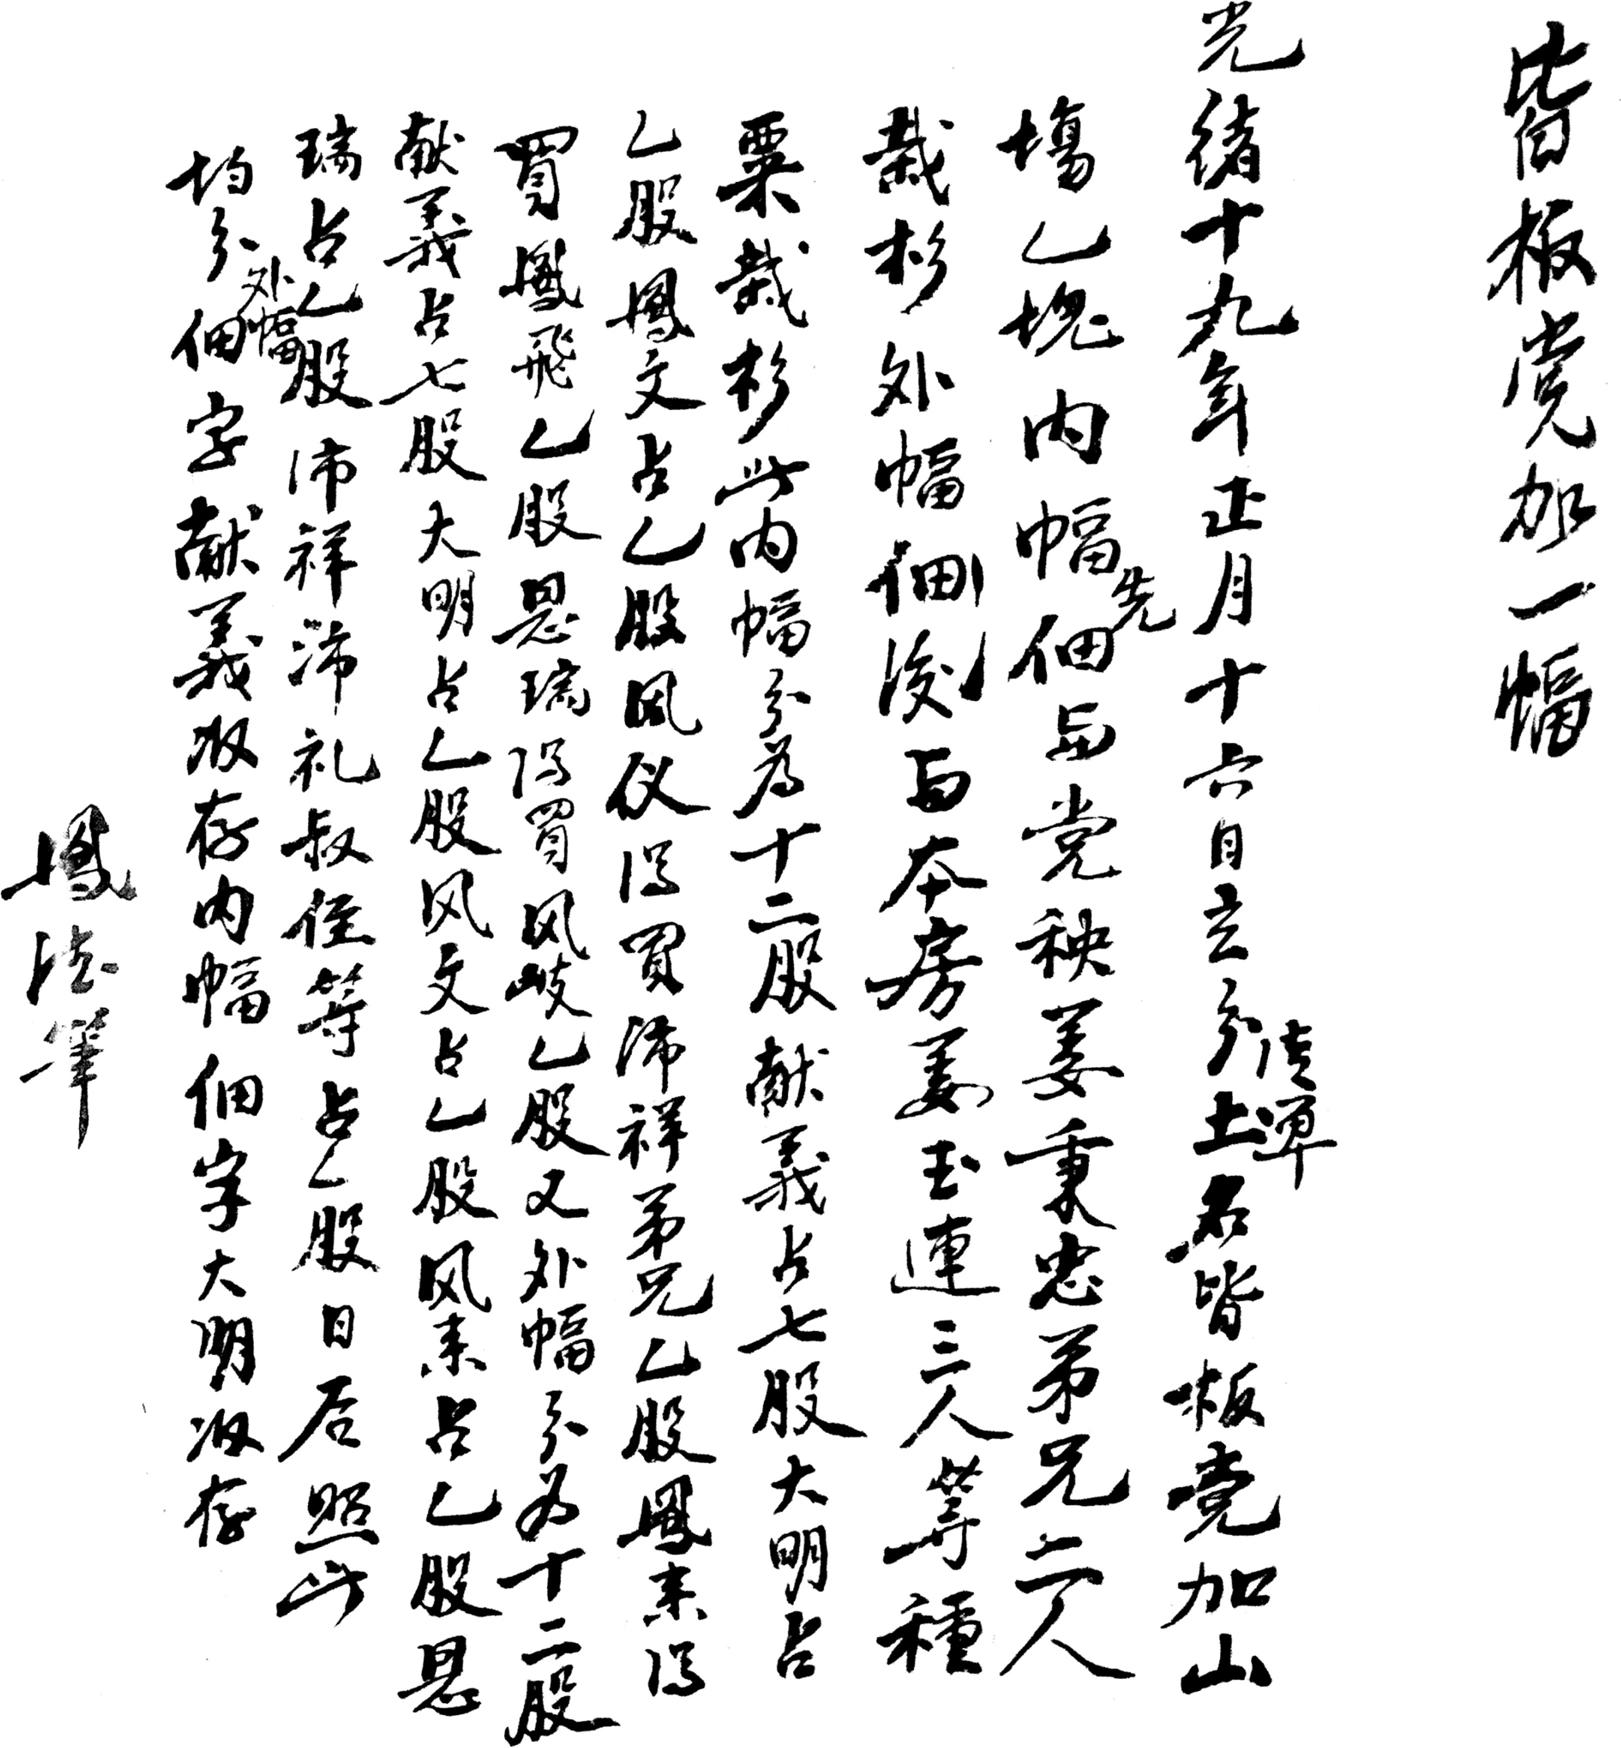 皆板党加一幅
光绪十九年正月十六日立分清單土名皆板党加山
塲乙塊内幅先佃与党秧姜秉忠弟兄二人
栽杉外幅佃後与本房姜玉連三人等種
粟栽杉此内幅分為十二股献義占七股大明占
乙股鳳文占乙股風仪得買沛祥弟兄乙股鳳来得
買鳳飛乙股恩瑞得買风岐乙股又外幅分为十二股
献義占七股大明占乙股风文占乙股风来占乙股恩
瑞占乙股沛祥沛礼叔侄等占乙股日后照此
均分外幅佃字献義收存内幅佃字大明收存
鳳法筆